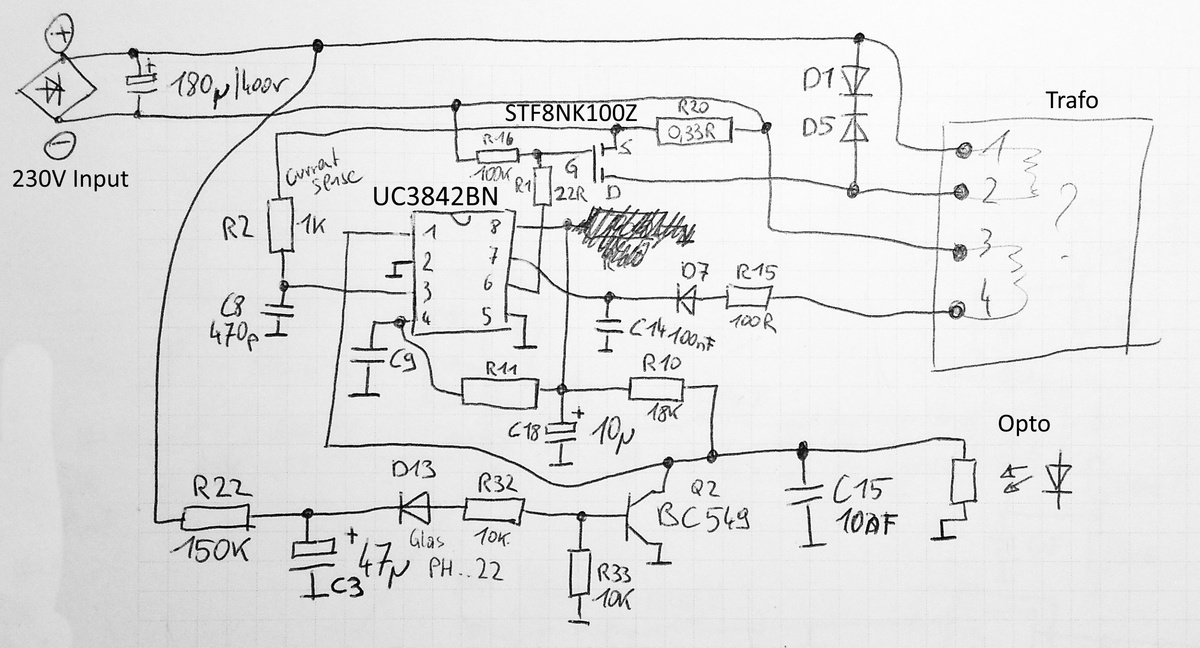 +
180µ/400v
-
230V Input
STF8NK100Z
R20
0,33R
D1
D5
Trafo
1
2
3
4
?
Current
sense
R16
100K
R1
22R
G
S
D
UC3842BN
R2
1K
1
2
3
4
8
7
6
5
C8
470p
C9
D7
R15
100R
C14 100nF
R11
R10
18K
C18
+
10µ
Opto
R22
150K
+
47µ
C3
D13
Glas
PH..22
R32
10K
Q2
BC549
R33
10K
C15